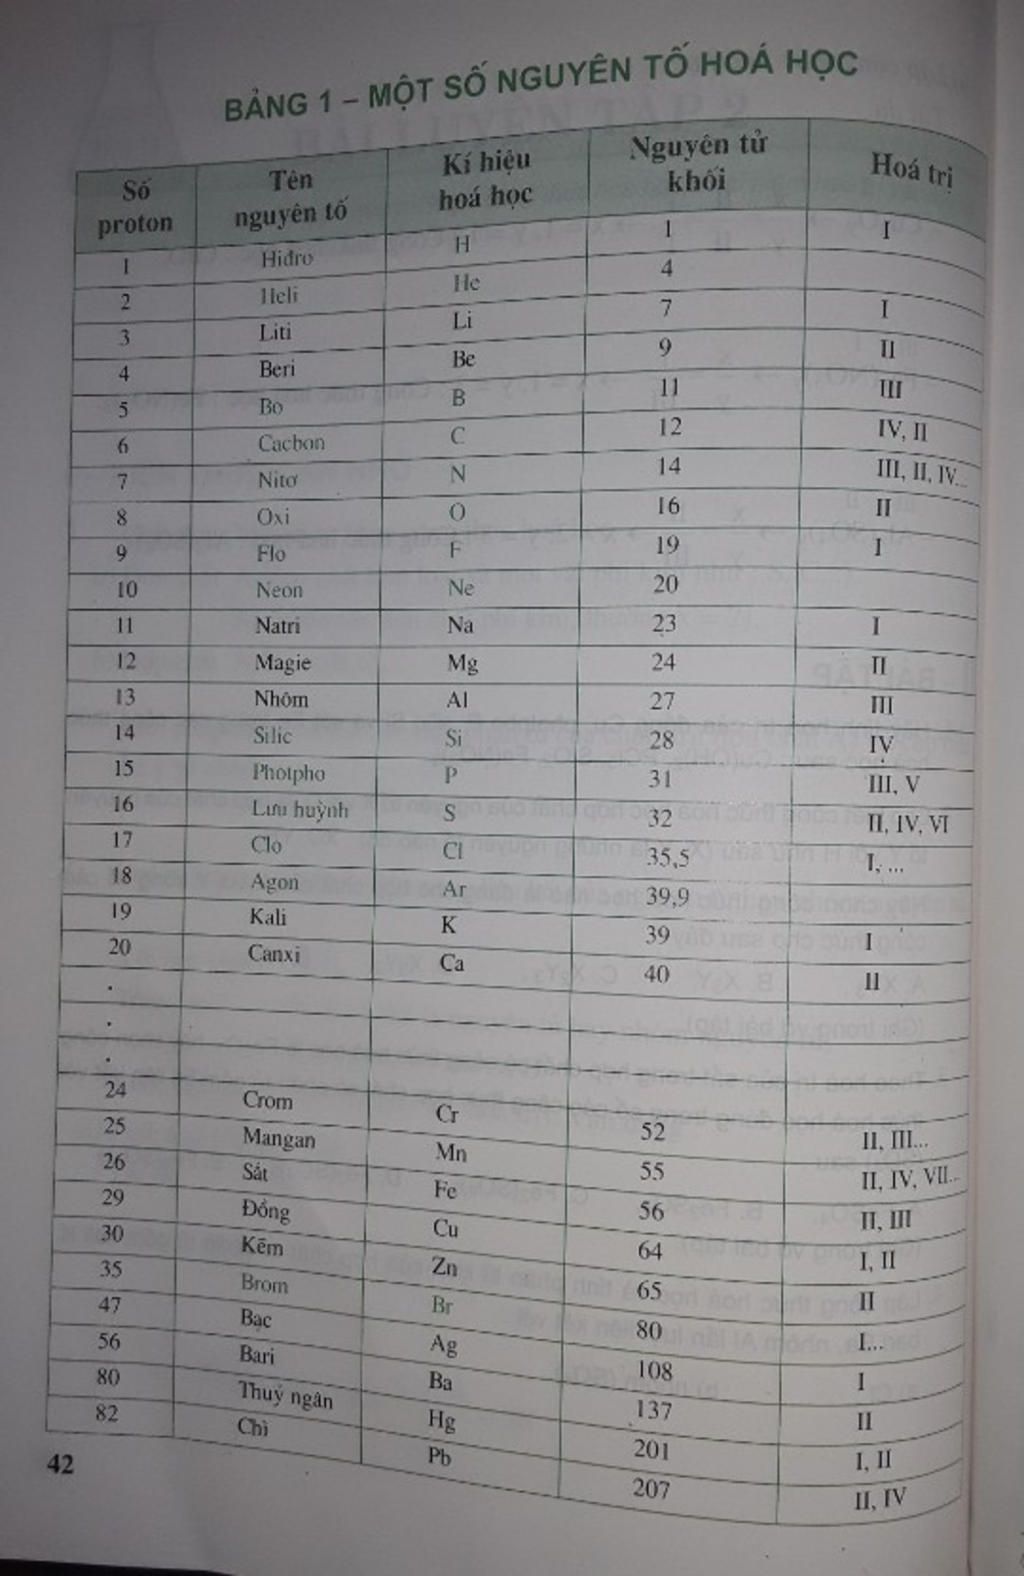 BẢNG 1 – MỘT SỐ NGUYÊN TỐ HOÁ HỌC
Số proton Tên nguyên tố Kí hiệu hoá học Nguyên tử khối Hoá trị
1 Hiđro H 1 I
2 Heli He 4
3 Liti Li 7 I
4 Beri Be 9 II
5 Bo B 11 III
6 Cacbon C 12 IV, II
7 Nitơ N 14 III, II, IV...
8 Oxi O 16 II
9 Flo F 19 I
10 Neon Ne 20
11 Natri Na 23 I
12 Magie Mg 24 II
13 Nhôm Al 27 III
14 Silic Si 28 IV
15 Photpho P 31 III, V
16 Lưu huỳnh S 32 II, IV, VI
17 Clo Cl 35,5 I, ...
18 Agon Ar 39,9
19 Kali K 39 I
20 Canxi Ca 40 II
.
.
.
24 Crom Cr 52 II, III...
25 Mangan Mn 55 II, IV, VII...
26 Sắt Fe 56 II, III
29 Đồng Cu 64 I, II
30 Kẽm Zn 65 II
35 Brom Br 80 I...
47 Bạc Ag 108 I
56 Bari Ba 137 II
80 Thuỷ ngân Hg 201 I, II
82 Chì Pb 207 II, IV
42